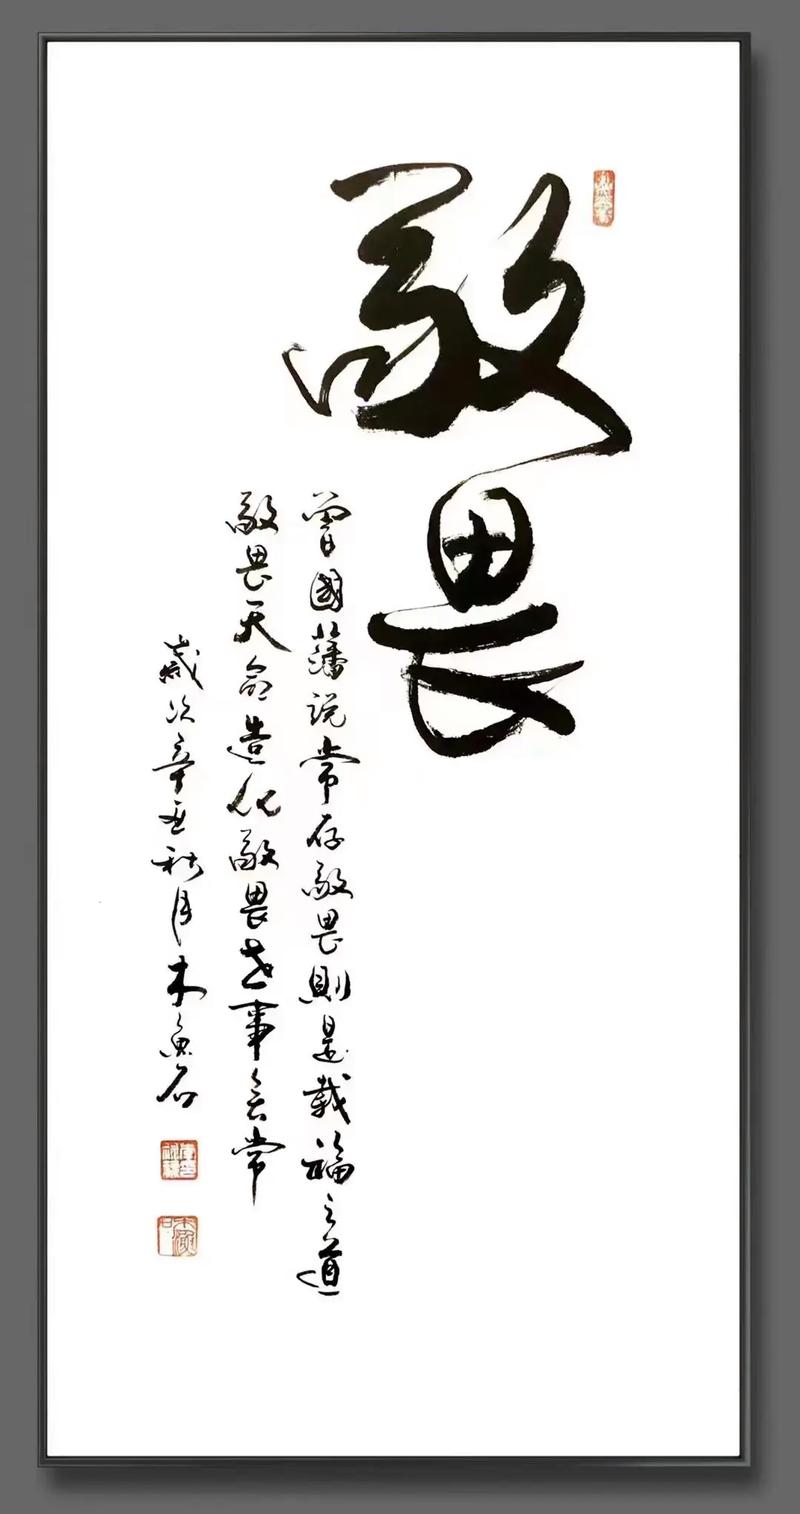 敬畏
曾國藩说常存敬畏則是载福之道
敬畏天命造化敬畏世事無常
歲次辛丑秋月木魚石